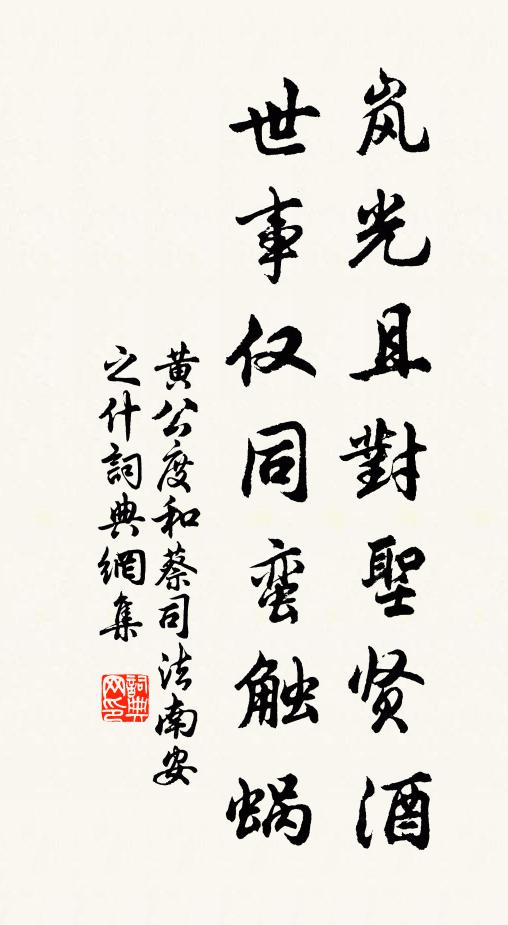 岚光且對聖贤酒
世事仅同蛮触蜗
黄公度和蔡司法南安
之什詞典網集
詞典网印